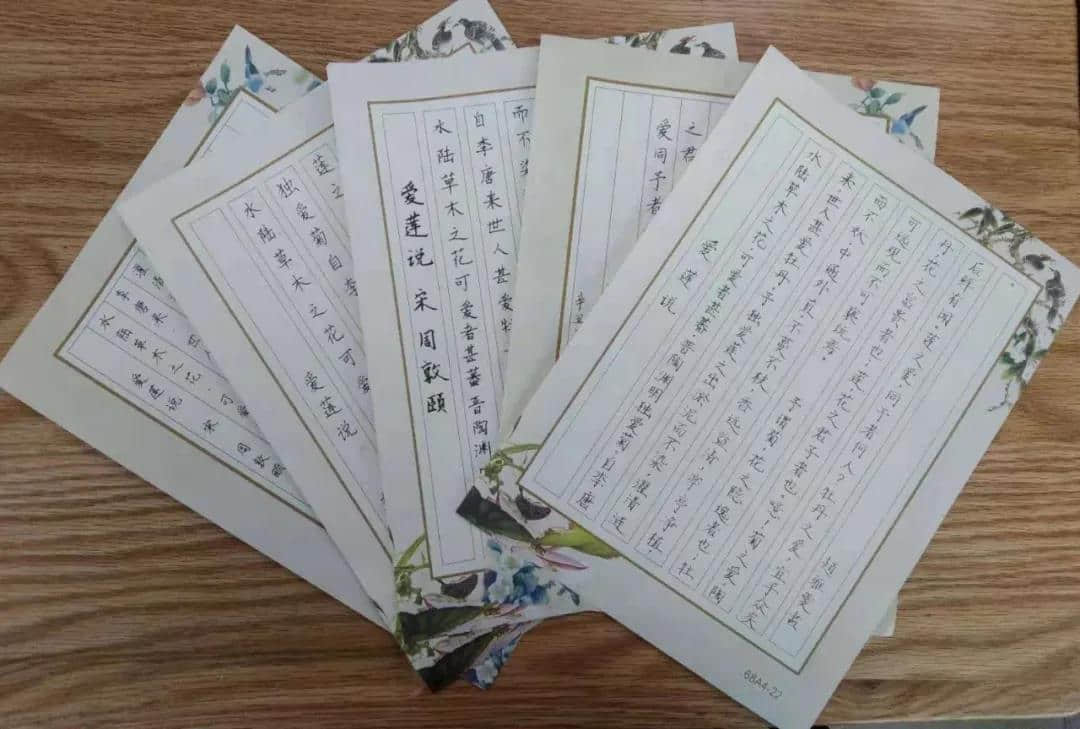 爱莲说 宋 周敦颐
水陆草木之花,可爱
李唐来,世人
爱莲说
水陆草木之花可爱
独爱菊自李
莲之
爱莲说 宋 周敦颐
水陆草木之花可爱者甚蕃,晋陶渊
自李唐来世人甚爱
而不
爱同予者
之君
爱莲说
水陆草木之花可爱者甚蕃 晋陶渊明独爱菊 自李唐
来,世人甚爱牡丹 予独爱莲之出於泥而不染 濯清涟
而不妖中通外直,不蔓不枝 香远益清,亭亭净植,
可远观而不可亵玩焉。 予谓菊,花之隐逸者也,牡
丹花之富贵者也,莲花之君子者也。噫!菊之爱陶
后鲜有闻。莲之爱,同予者何人?牡丹之爱,宜乎众矣
。
68A4-22